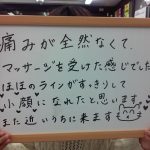 痛みが全然なくて、
マッサージを受けた感じでした
ほほのラインがすっきりして
小顔になれたと思います
また近いうちに来ます